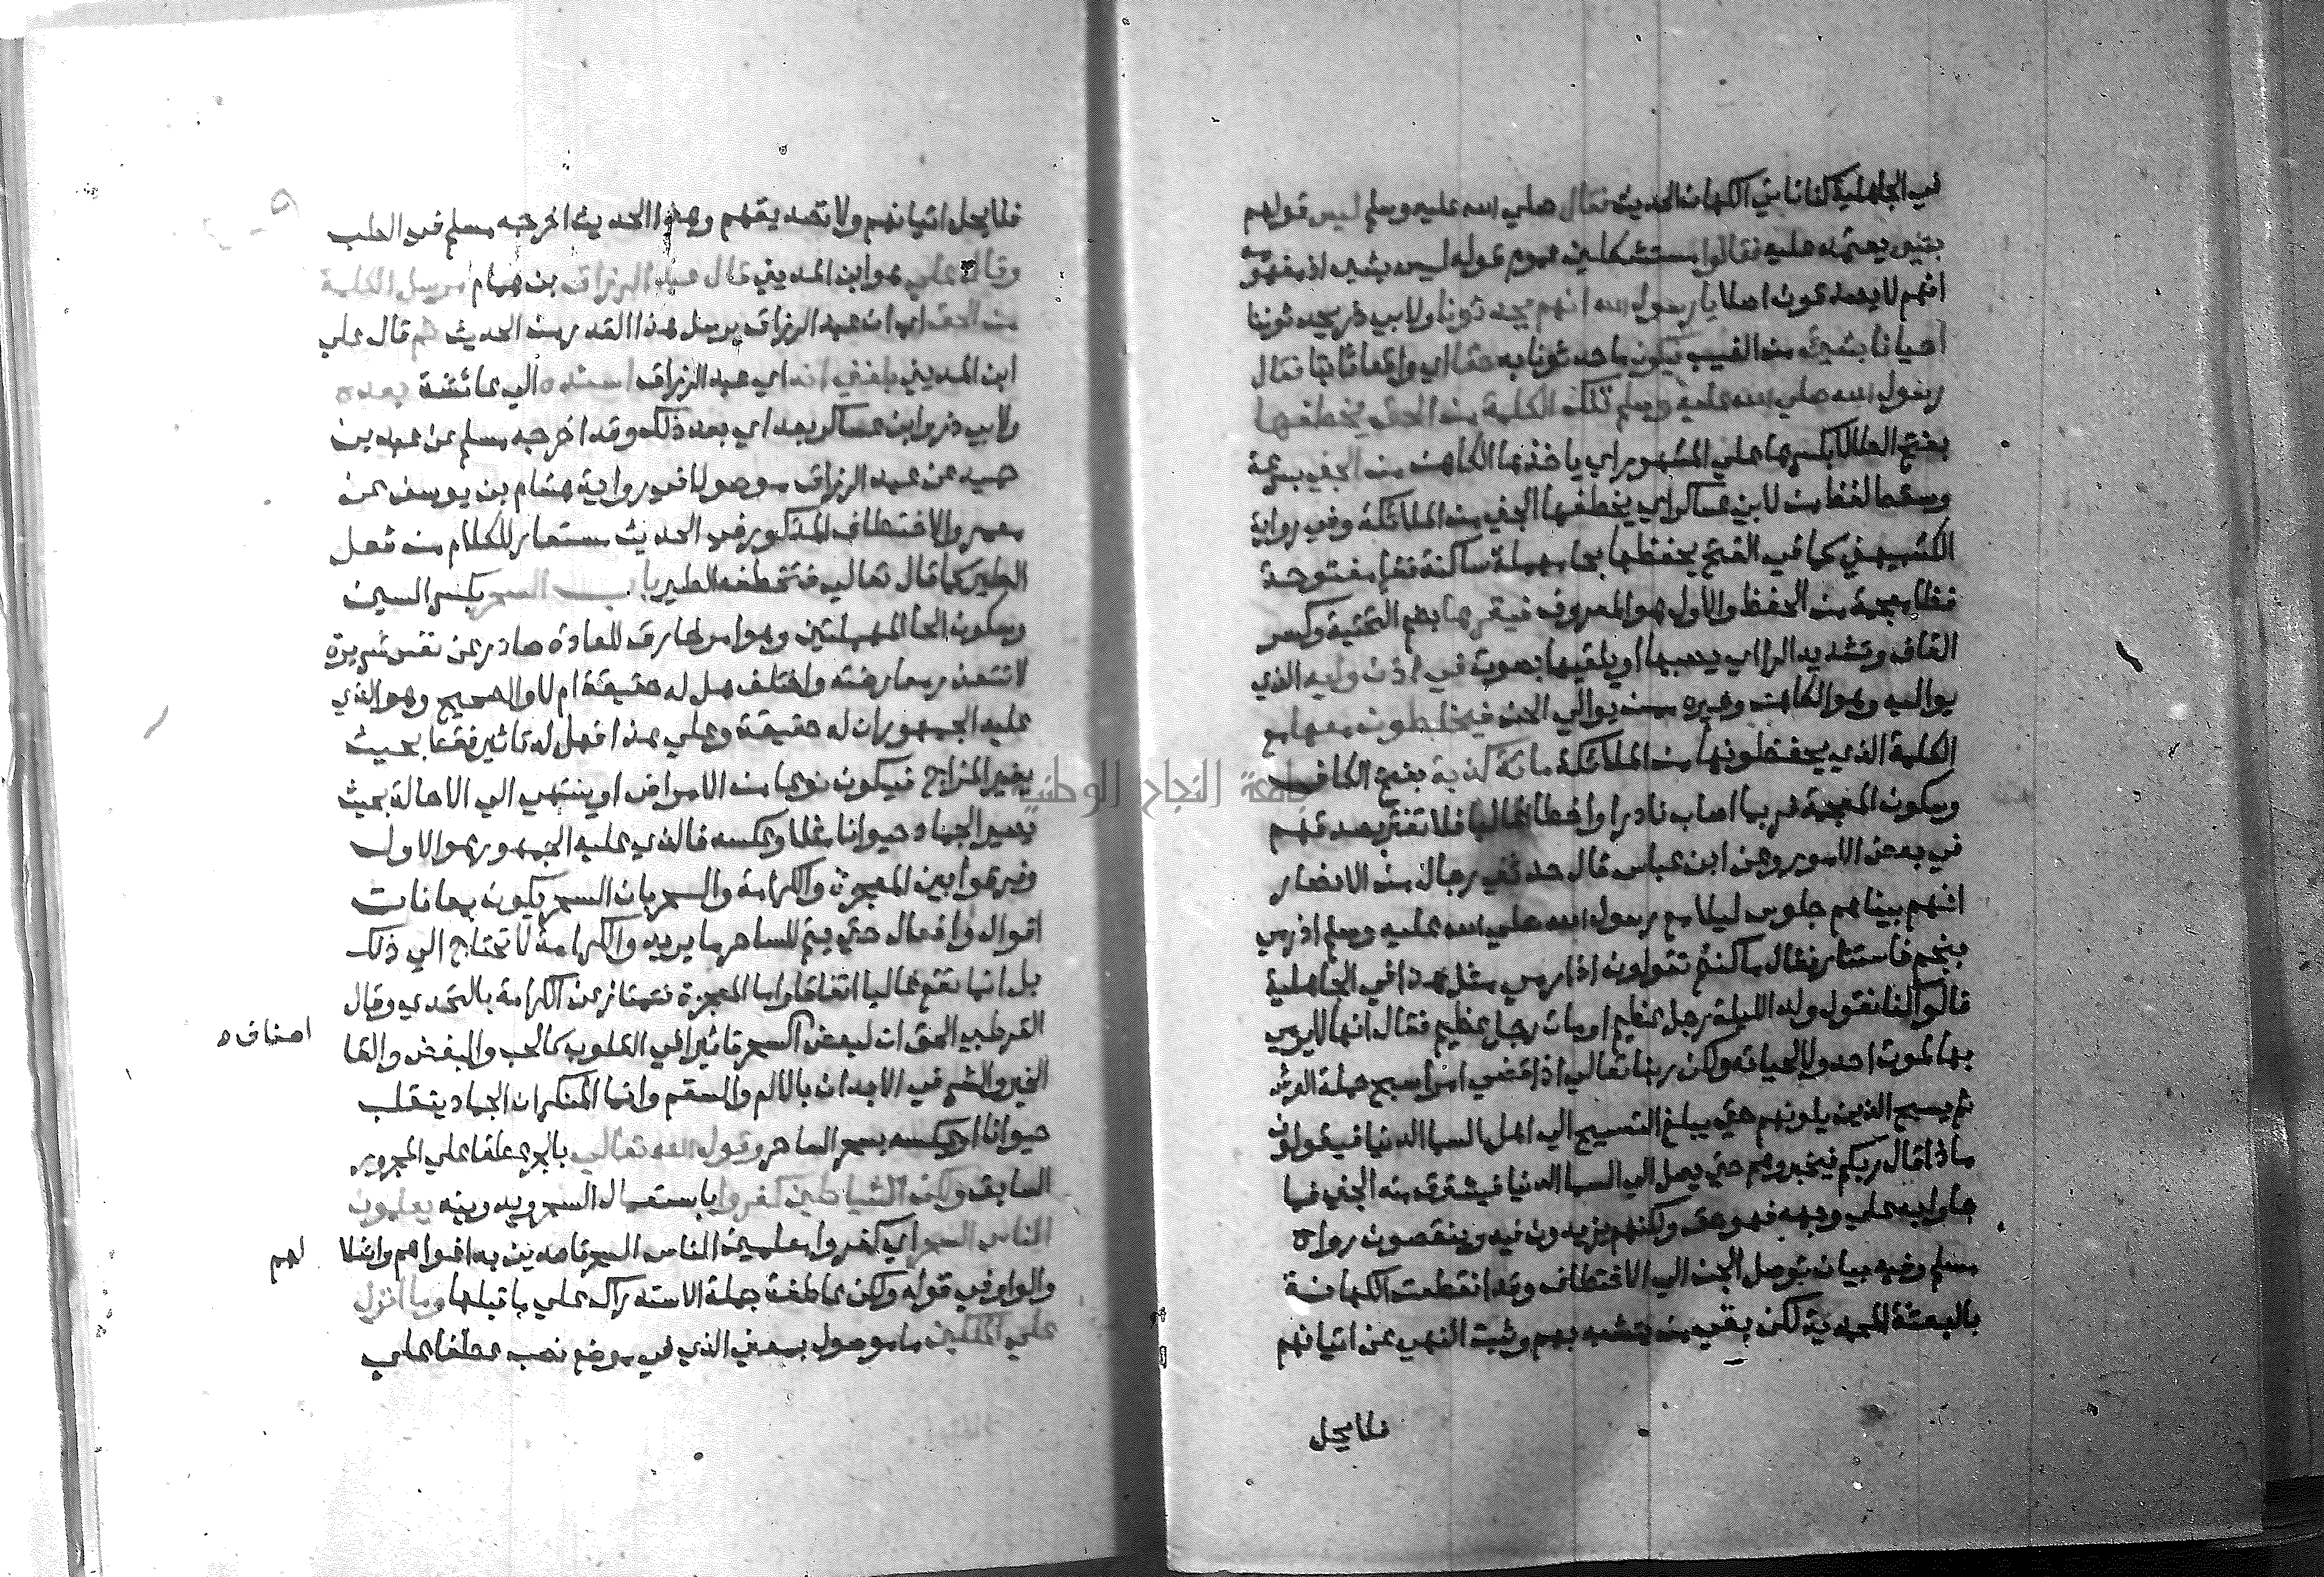 في الجاهلية كنا ناتي الكهان الحديث فقال صلي الله عليه وسلم ليس قولهم
بشي يعتمد عليه فقالوا مستشكلين عموم قوله ليس بشي اذ مفهومه
انهم لا يصدقون اصلا يا رسول الله انهم يحدثونا ولابي ذر يحدثوننا
احيانا بشي من الغيب يكون ما حدثونا به حقا اي واقعا ثابتا فقال
رسول الله صلي الله عليه وسلم تلك الكلمة من الحق يخطفها
بفتح الطا لا بكسرها علي المشهور اي ياخذها الكاهن من الجني بسرعة
وسقط لفظ من لابن عساكر اي يخطفها الجني من الملائكة وفي رواية
الكشميهني كما في الفتح يحفظها بحا مهملة ساكنة ففا مفتوحة
فظا معجمة من الحفظ والاول هو المعروف فيقرها بضم التحتية وكسر
القاف وتشديد الراي يصبها او يلقيها بصوت في اذن وليه الذي
يواليه وهو الكاهن وغيره ممن يوالي الجن فيخلطون معها مع
الكلمة الذي يحفظونها من الملائكة مائة كذبة بفتح الكاف
وسكون المعجمة فربما اصاب نادرا واخطا غالبا فلا تغتر بصدقهم
في بعض الامور وعن ابن عباس قال حدثني رجال من الانصار
انهم بيناهم جلوس ليلا مع رسول الله صلي الله عليه وسلم اذ رمي
بنجم فاستنار فقال ما كنتم تقولون اذا رمي مثل هذا في الجاهلية
قالوا كنا نقول ولد الليلة رجل عظيم او مات رجل عظيم فقال انها لا يرمي
بها لموت احد ولا لحياته ولكن ربنا تعالي اذا قضي امرا سبح حملة العرش
ثم يسبح الذين يلونهم حتي يبلغ التسبيح الي اهل السما الدنيا فيقولون
ماذا قال ربكم فيخبرونهم حتي يصل الي السما الدنيا فيسترق منه الجني فما
جاوا به علي وجهه فهو حق ولكنهم يزيدون فيه وينقصون رواه
مسلم وفيه بيان توصل الجن الي الاختطاف وقد انقطعت الكهانة
بالبعثة المحمدية لكن بقي من يتشبه بهم وثبت النهي عن اتيانهم
فلا يحل
فلا يحل اتيانهم ولا تصديقهم وهذا الحديث اخرجه مسلم في الطب
وقال علي هو ابن المديني قال عبد الرزاق بن همام مرسل الكلمة
من الحق اي ان عبد الرزاق يرسل هذا القدر من الحديث ثم قال علي
ابن المديني بلغني انه اي عبد الرزاق اسنده الي عائشة بعده
ولابي ذر وابن عساكر بعد اي بعد ذلك وقد اخرجه مسلم عن عبد بن
حميد عن عبد الرزاق موصولا في رواية هشام بن يوسف عن
معمر والاختطاف المذكور في الحديث مستعار للكلام من فعل
الطير كما قال تعالي فتخطفه الطير باب السحر بكسر السين
وسكون الحا المهملتين وهو امر خارق للعادة صادر عن نفس شريرة
لا تتعذر معارضته واختلف هل له حقيقة ام لا والصحيح وهو الذي
عليه الجمهور ان له حقيقة وعلي هذا فهل له تاثير فقط بحيث
يغير المزاج فيكون نوعا من الامراض او ينتهي الي الاحالة بحيث
تصير الجماد حيوانا مثلا وعكسه فالذي عليه الجمهور هو الاول
وفرقوا بين المعجزة والكرامة والسحر بان السحر يكون بمعانات
اقوال وافعال حتي يتم للساحر ما يريد والكرامة لا تحتاج الي ذلك
بل انما تقع غالبا اتفاقا واما المعجزة فتمتاز عن الكرامة بالتحدي وقال
القرطبي الحق ان لبعض اصناف السحر تاثيرا في القلوب كالحب والبغض والقا
الخير والشر في الابدان بالالم والسقم وانما المنكر ان الجماد ينقلب
حيوانا او عكسه بسحر الساحر وقول الله تعالي بالجر عطفا علي المجرور
السابق ولكن الشياطين كفروا باستعمال السحر وتدوينه يعلمون
الناس السحر اي كفروا معلمين الناس السحر قاصدين به اغواهم واضلالهم
والواو في قوله ولكن عاطفة جملة الاستدراك علي ما قبلها وما انزل
علي الملكين ما موصول بمعني الذي في موضع نصب عطفا علي